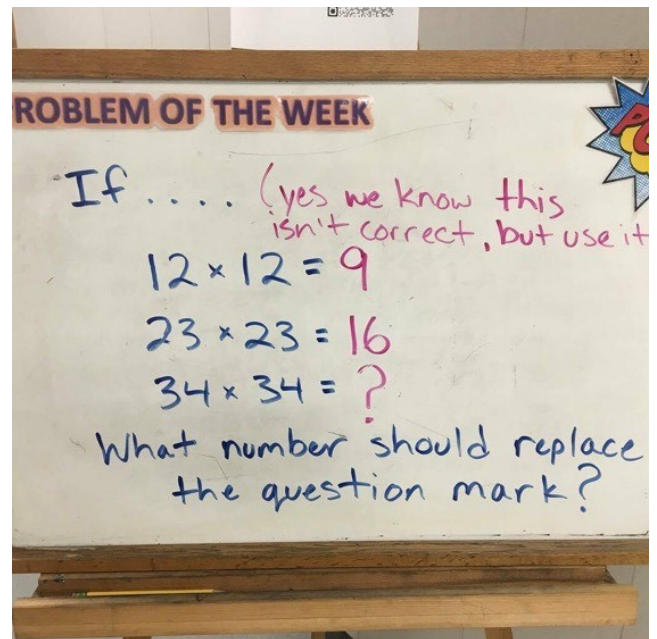 ROBLEM OF THE WEEK
If .... (yes we know this
isn't correct, but use it
12 × 12 = 9
23 × 23 = 16
34 × 34 = ?
What number should replace
the question mark?